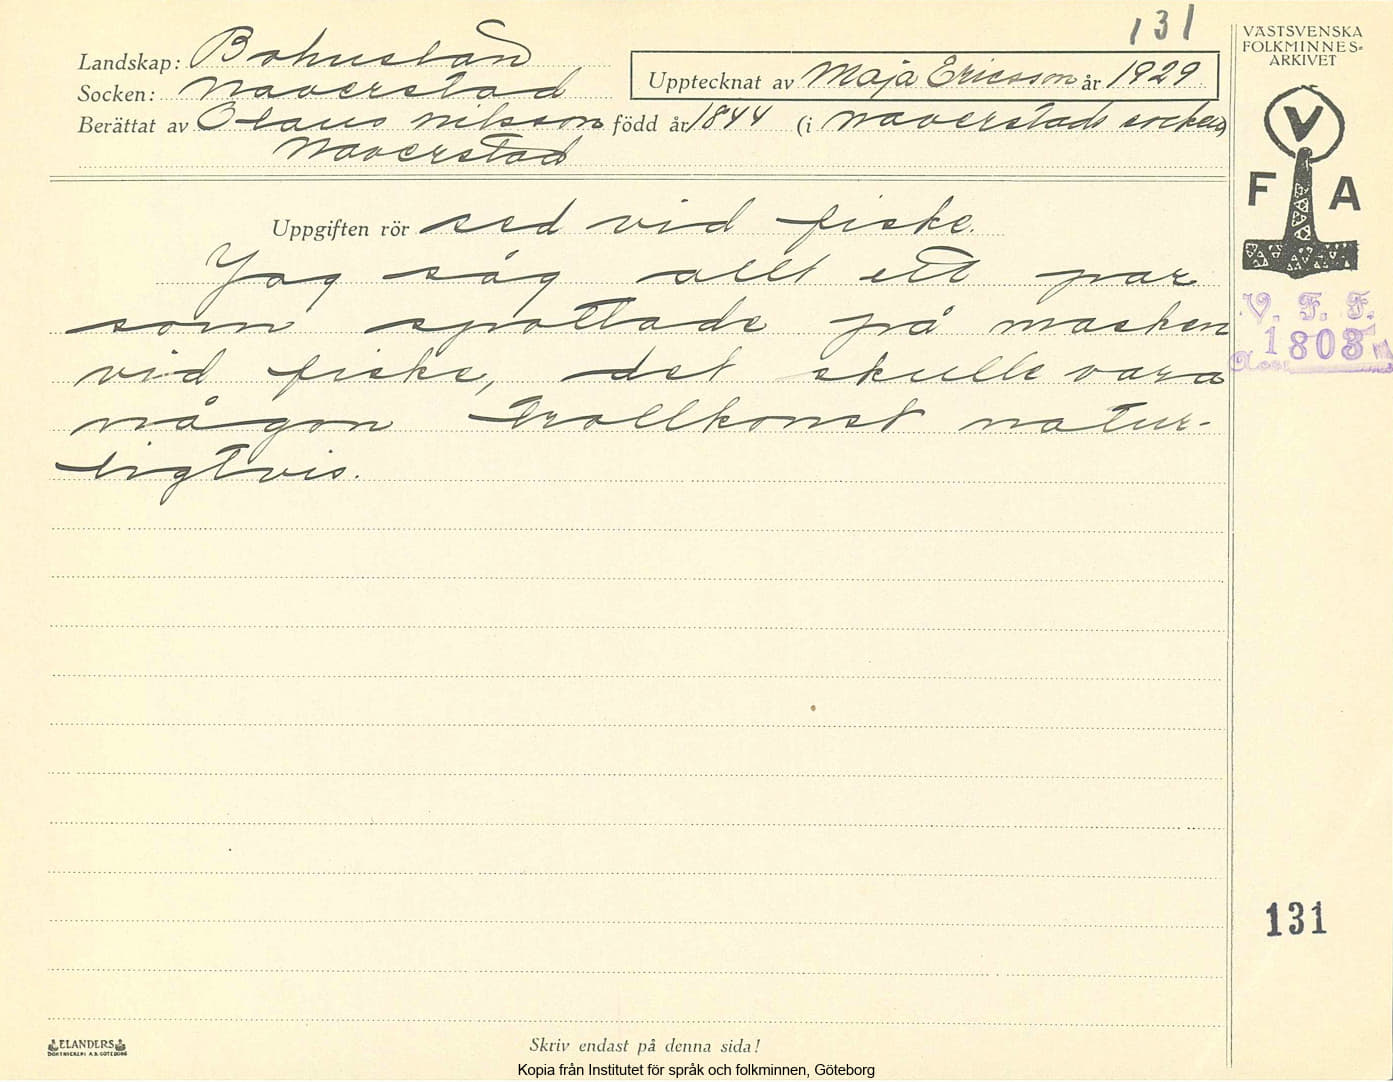 131
VÄSTSVENSKA
FOLKMINNES-
ARKIVET
Landskap: Bohuslän
Socken: Naverstad
Upptecknat av Maja Ericsson år 1929
Berättat av Olaus Nilsson född år 1844 (i Naverstads socken)
Naverstad
V
F A
Uppgiften rör sed vid fiske.
Jag såg allt ett par
som spottade på masken
vid fiske, det skulle vara
någon trollkonst natur-
ligtvis.
V. F. F.
1803
131
ELANDERS
BOKTRYCKERI A.B. GÖTEBORG
Skriv endast på denna sida!
Kopia från Institutet för språk och folkminnen, Göteborg